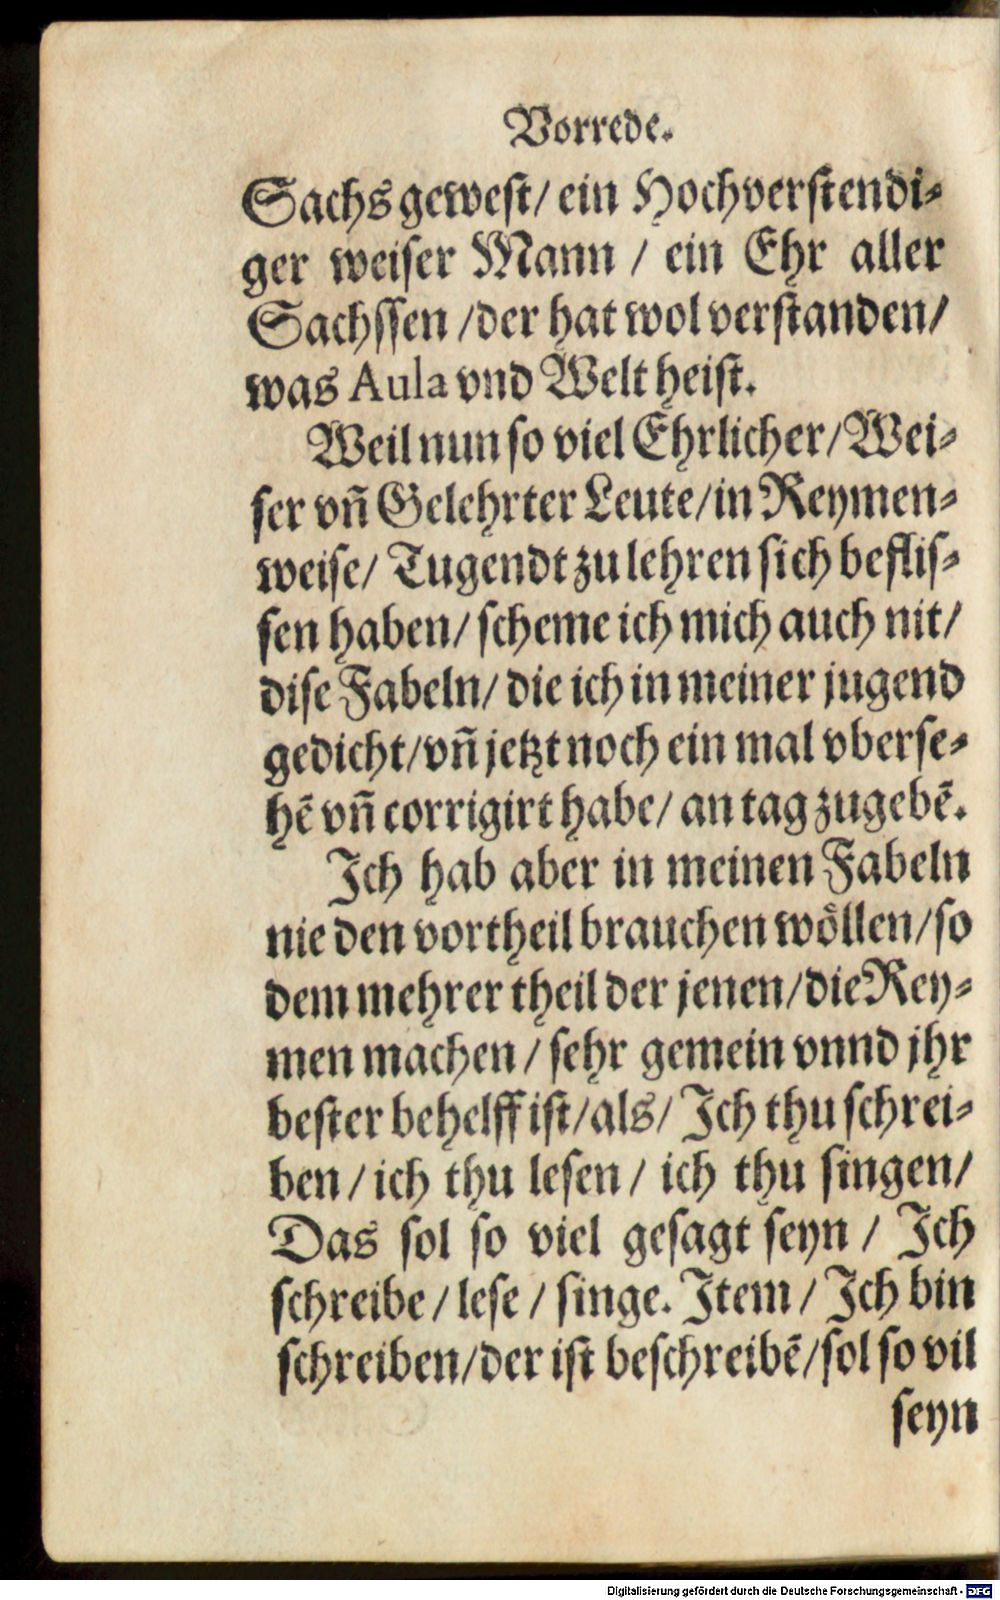 Vorrede.
Sachs geweſt/ ein Hochverſtendi⸗
ger weiſer Mann / ein Ehr aller
Sachſſen /der hat wol verſtanden/
was Aula vnd Welt heiſt.
Weil nun ſo viel Ehrlicher/ Wei⸗
ſer vn̄ Gelehrter Leute/in Reymen⸗
weiſe/ Tugendt zu lehren ſich befliſ⸗
ſen haben/ ſcheme ich mich auch nit/
diſe Fabeln/ die ich in meiner jugend
gedicht/vn̄ jetzt noch ein mal vberſe⸗
hē vn̄ corrigirt habe/ an tag zugebē.
Ich hab aber in meinen Fabeln
nie den vortheil brauchen woͤllen/ſo
dem mehrer theil der jenen/die Rey⸗
men machen / ſehr gemein vnnd jhr
beſter behelff iſt/als/ Ich thu ſchrei⸗
ben / ich thu leſen / ich thu ſingen/
Das ſol ſo viel geſagt ſeyn / Ich
ſchreibe / leſe / ſinge. Item / Ich bin
ſchreiben/der iſt beſchreibē/ſol ſo vil
ſeyn
Digitalisierung gefördert durch die Deutsche Forschungsgemeinschaft - DFG